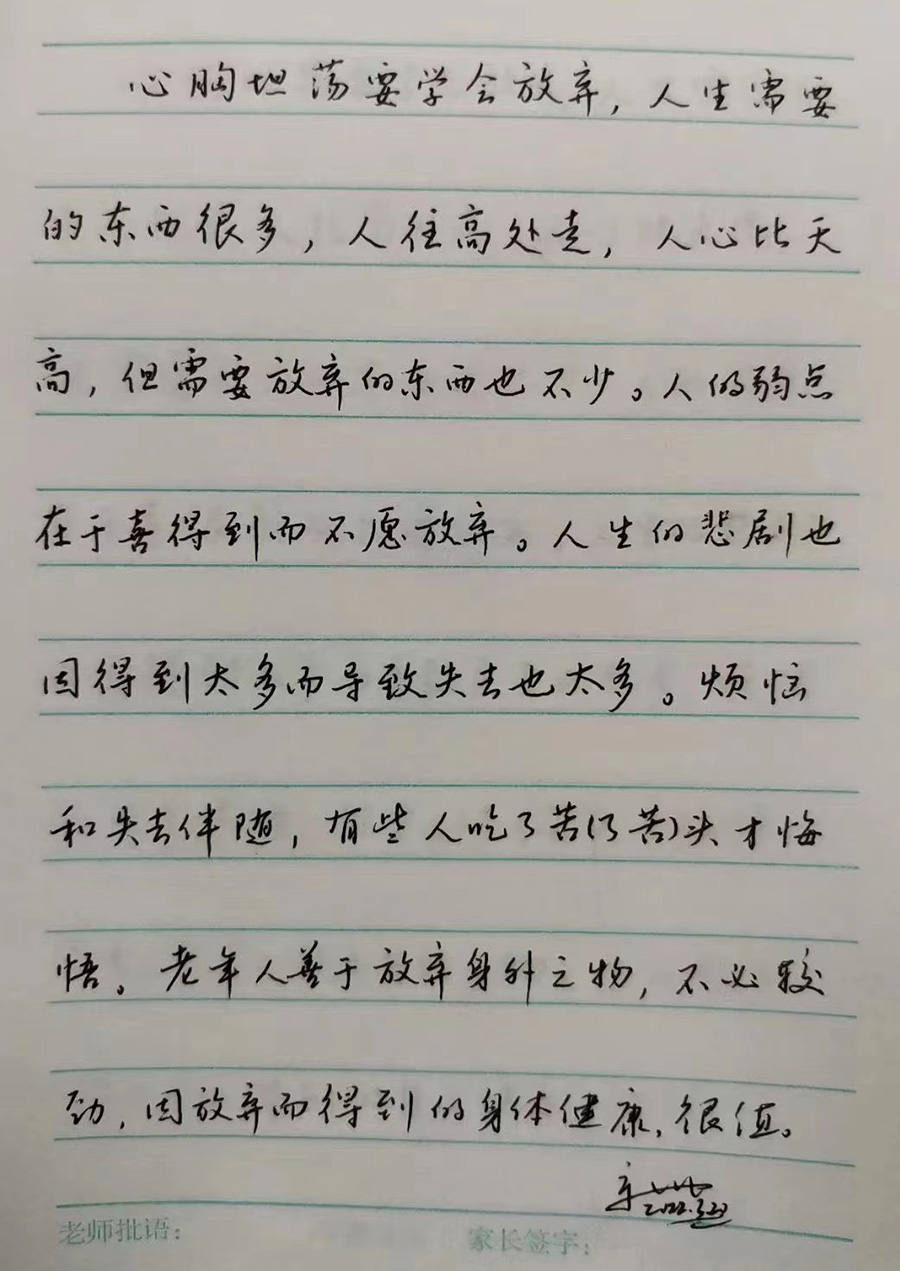 心胸坦荡要学会放弃，人生需要
的东西很多，人往高处走，人心比天
高，但需要放弃的东西也不少。人的弱点
在于喜得到而不愿放弃。人生的悲剧也
因得到太多而导致失去也太多。烦恼
和失去伴随，有些人吃了苦(了苦)头才悔
悟。老年人善于放弃身外之物，不必较
劲，因放弃而得到的身体健康，很值。
老师批语：
家长签字：